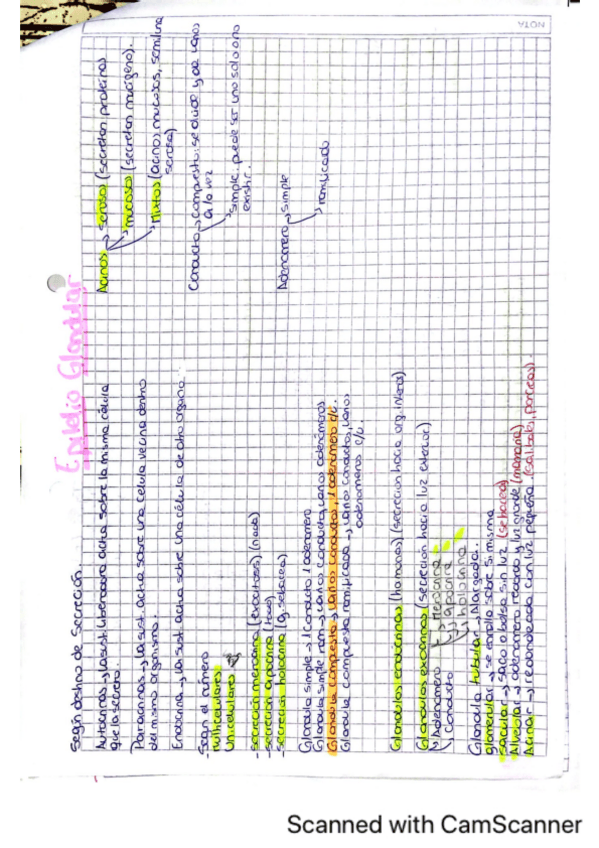 NOTA
Epitelio Glandular
Según destino de secreción.
Autocrinas → la sust. liberadora actua sobre la misma célula
que la secreto.
Paracrinas → la sust. actua sobre una celula vecina dentro
del mismo organismo.
Endocrina → la sust actua sobre una célula de otro organo.
-Según el número
multicelulares
Unicelulares
-secreción merocrina (exocitosis) (nada)
-secreción apocrina
-secreción holocrina (g. sebacea)
Glandula simple → 1 conducto 1 adenomero
Glandula simple ram → varios conducto varios adenómeros
Glandula compuesta → varios conductos, 1 adenómero c/u.
Glandula compuesta ramificada → varios conducto, varios
adenomeros c/u.
Glandulas endocrinas (hormonas) (secrecion hacia org. interos)
Glandulas exocrinas (secreción hacia luz exterior)
Adenomero
→ merocrina
→ apocrina
→ holocrina
Conducto
Glandula tubular → Alargada.
glomerular → se enrolla sobre si misma
Sacular → saco o bolsa sin luz (sebacea)
Alveolar → adenomero redondo y luz grande (mamaria)
Acinar → redondeada con luz pequeña. (salibales,
Acinos → Serosos (secretan proteinas
→ mucosos (secretan mucigeno).
→ Mixtos (acinos mucosos, semiluna
serosa)
Conducto → compuesto: se divide y da varios
a la vez
simple. puede ser uno solo o no
existir.
Adenomero → simple
→ ramificado
Scanned with CamScanner